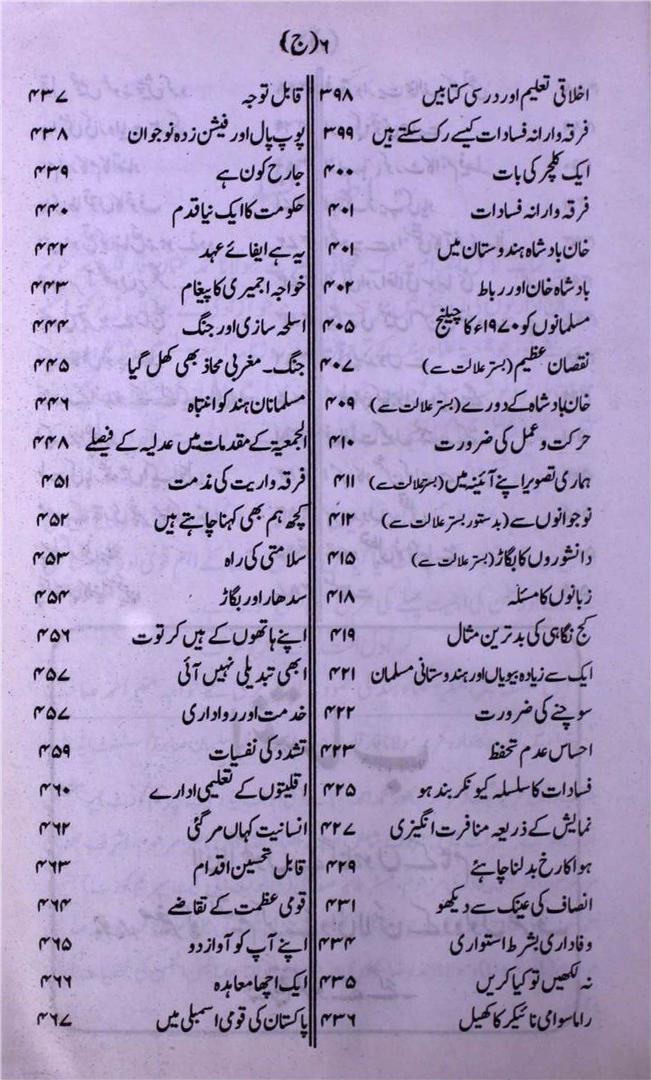 ۶(ج)
اخلاقی تعلیم اور درسی کتابیں ۳۹۸
فرقہ وارانہ فسادات کیسے رک سکتے ہیں ۳۹۹
ایک کلچر کی بات ۴۰۰
فرقہ وارانہ فسادات ۴۰۱
خان بادشاہ ہندوستان میں ۴۰۱
بادشاہ خان اور رباط ۴۰۲
مسلمانوں کو ۱۹۷۰ء کا چیلنج ۴۰۵
نقصان عظیم (بستر علالت سے) ۴۰۷
خان بادشاہ کے دورے (بستر علالت سے) ۴۰۹
حرکت و عمل کی ضرورت ۴۱۰
ہماری تصویر اپنے آئینہ میں (بستر علالت سے) ۴۱۱
نوجوانوں سے (بدستور بستر علالت سے) ۴۱۲
دانشوروں کا بگاڑ (بستر علالت سے) ۴۱۵
زبانوں کا مسئلہ ۴۱۸
کج نگاہی کی بدترین مثال ۴۱۹
ایک سے زیادہ بیویاں اور ہندوستانی مسلمان ۴۲۱
سوچنے کی ضرورت ۴۲۲
احساس عدم تحفظ ۴۲۳
فسادات کا سلسلہ کیونکر بند ہو ۴۲۵
نمایش کے ذریعہ منافرت انگیزی ۴۲۷
ہوا کا رخ بدلنا چاہئے ۴۲۹
انصاف کی عینک سے دیکھو ۴۳۱
وفاداری بشرط استواری ۴۳۴
نہ لکھیں تو کیا کریں ۴۳۵
راما سوامی نائیکر کا کھیل ۴۳۶
قابل توجہ ۴۳۷
پوپ پال اور فیشن زدہ نوجوان ۴۳۸
جارح کون ہے ۴۳۹
حکومت کا ایک نیا قدم ۴۴۰
یہ ہے ایفائے عہد ۴۴۲
خواجہ اجمیری کا پیغام ۴۴۳
اسلحہ سازی اور جنگ ۴۴۴
جنگ۔ مغربی محاذ بھی کھل گیا ۴۴۵
مسلمانان ہند کو انتباہ ۴۴۶
الجمعیۃ کے مقدمات میں عدلیہ کے فیصلے ۴۴۸
فرقہ واریت کی مذمت ۴۵۱
کچھ ہم بھی کہنا چاہتے ہیں ۴۵۲
سلامتی کی راہ ۴۵۳
سدھار اور بگاڑ ۴۵۴
اپنے ہاتھوں کے ہیں کرتوت ۴۵۶
ابھی تبدیلی نہیں آئی ۴۵۷
خدمت اور رواداری ۴۵۷
تشدد کی نفسیات ۴۵۹
اقلیتوں کے تعلیمی ادارے ۴۶۰
انسانیت کہاں مر گئی ۴۶۲
قابل تحسین اقدام ۴۶۳
قومی عظمت کے تقاضے ۴۶۴
اپنے آپ کو آواز دو ۴۶۵
ایک اچھا معاہدہ ۴۶۶
پاکستان کی قومی اسمبلی میں ۴۶۷